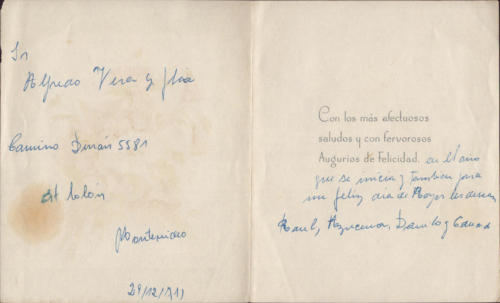 Sr
Alfredo Vera y flia
Camino Durán 5581
Colon
Montevideo
Con los más afectuosos
saludos y con fervorosos
Augurios de Felicidad. en el año
que se inicia y tambien para
un feliz dia de Reyes les desean
Raul, Azucena, Danilo y